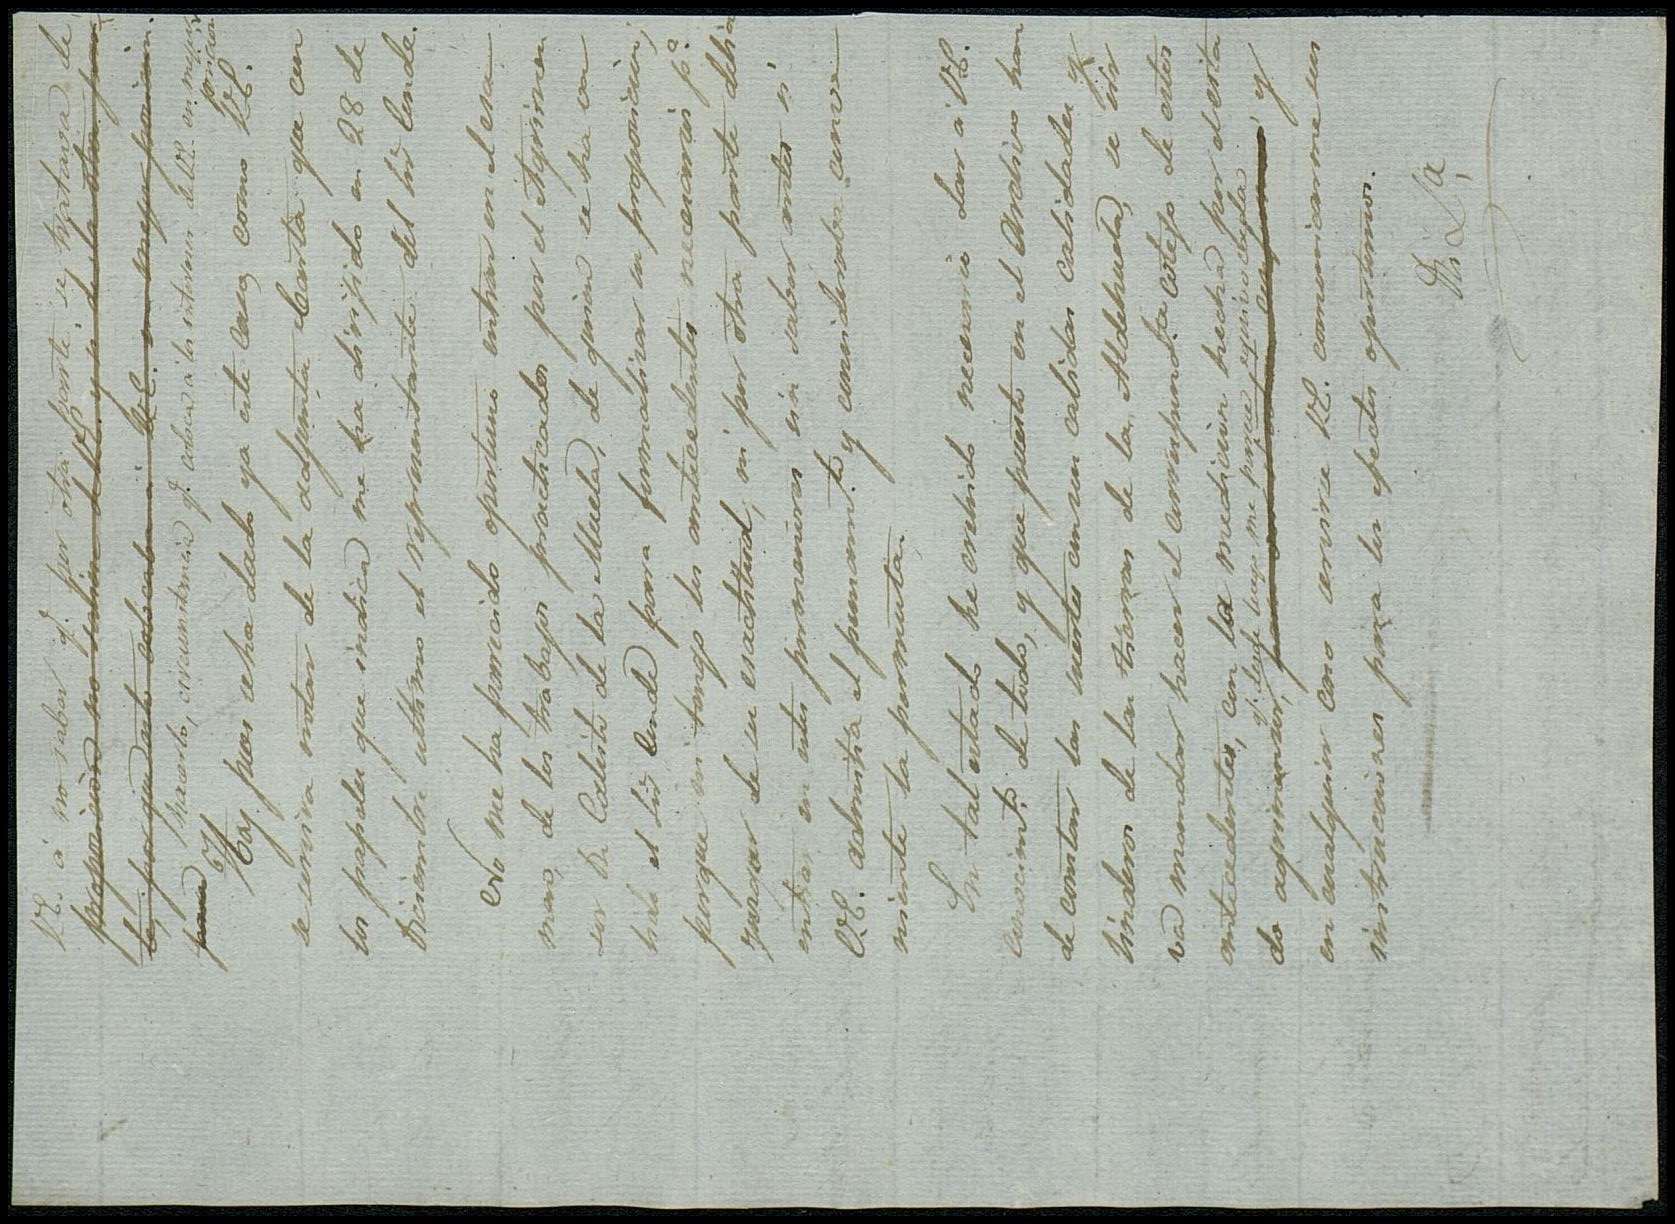 VE. á no saber q. por otra parte, se trataria de
hacerlo, circunstancia q. coloca a los intereses de VE. en mejor posicion
Hoy pues se ha dado ya este caso, como VE.
se servirá notar de la adjunta carta que con
los papeles que indica me ha dirijido en 28 de
Diciembre ultimo el representante del Sor Conde.
No me ha parecido oportuno entrar en el exa
men de los trabajos practicados por el Agrimen
sor Dn Calisto de la Muela, de quien se ha va
lido el Sor Conde para formalizar su proposicion,
porque ni tengo los antecedentes necesarios pa.
juzgar de su esactitud, ni por otra parte debia
entrar en estos pormenores sin saber antes si
VE. admitia el pensamto. y consideraba conve
niente la permuta.
En tal estado he creido necesario dar a VE.
conocimto. de todo, y que puesto en el Archivo han
de constar las suertes con sus cabidas calidades y
linderos de las tierras de la Aldehuela, se sir
va mandar hacer el correspondte. cotejo de estos
antecedentes, con la medicion hecha por el cita
do agrimensor, q. desde luego me parece equivocada y
en cualquier caso servirse VE. comunicarme sus
instrucciones para los efectos oportunos.